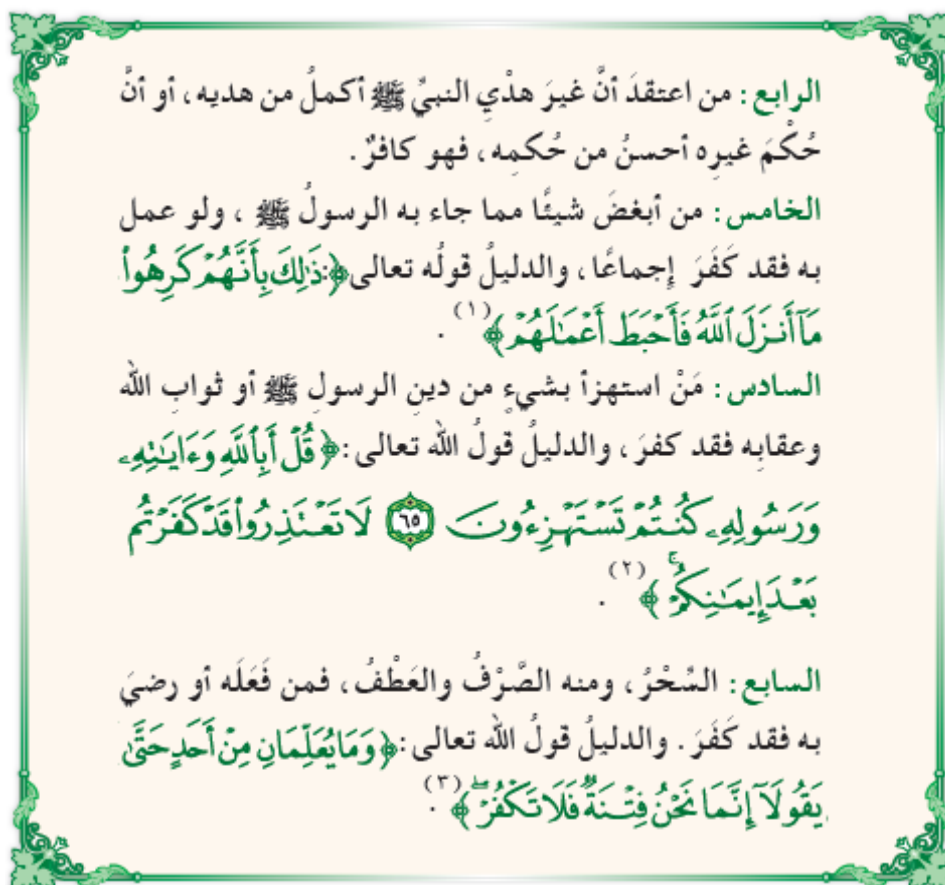 الرابع: من اعتقدَ أنَّ غيرَ هدْيِ النبيِّ ﷺ أكملُ من هديه، أو أنَّ
حُكْمَ غيرِه أحسنُ من حُكمِه، فهو كافرٌ.
الخامس: من أبغضَ شيئًا مما جاء به الرسولُ ﷺ ، ولو عمل
به فقد كَفَرَ إِجماعًا، والدليلُ قولُه تعالى ﴿ذَٰلِكَ بِأَنَّهُمْ كَرِهُوا۟
مَآ أَنزَلَ ٱللَّهُ فَأَحْبَطَ أَعْمَٰلَهُمْ﴾(١).
السادس: مَنْ استهزأ بشيءٍ من دينِ الرسولِ ﷺ أو ثوابِ الله
وعقابِه فقد كفرَ، والدليلُ قولُ الله تعالى: ﴿قُلْ أَبِٱللَّهِ وَءَايَٰتِهِۦ
وَرَسُولِهِۦ كُنتُمْ تَسْتَهْزِءُونَ ٦٥ لَا تَعْتَذِرُوا۟ قَدْ كَفَرْتُم
بَعْدَ إِيمَٰنِكُمْ ۚ﴾(٢).
السابع: السِّحْرُ، ومنه الصَّرْفُ والعَطْفُ، فمن فَعَلَه أو رضيَ
به فقد كَفَرَ. والدليلُ قولُ الله تعالى: ﴿وَمَا يُعَلِّمَانِ مِنْ أَحَدٍ حَتَّىٰ
يَقُولَآ إِنَّمَا نَحْنُ فِتْنَةٌ فَلَا تَكْفُرْ ۖ﴾(٣).